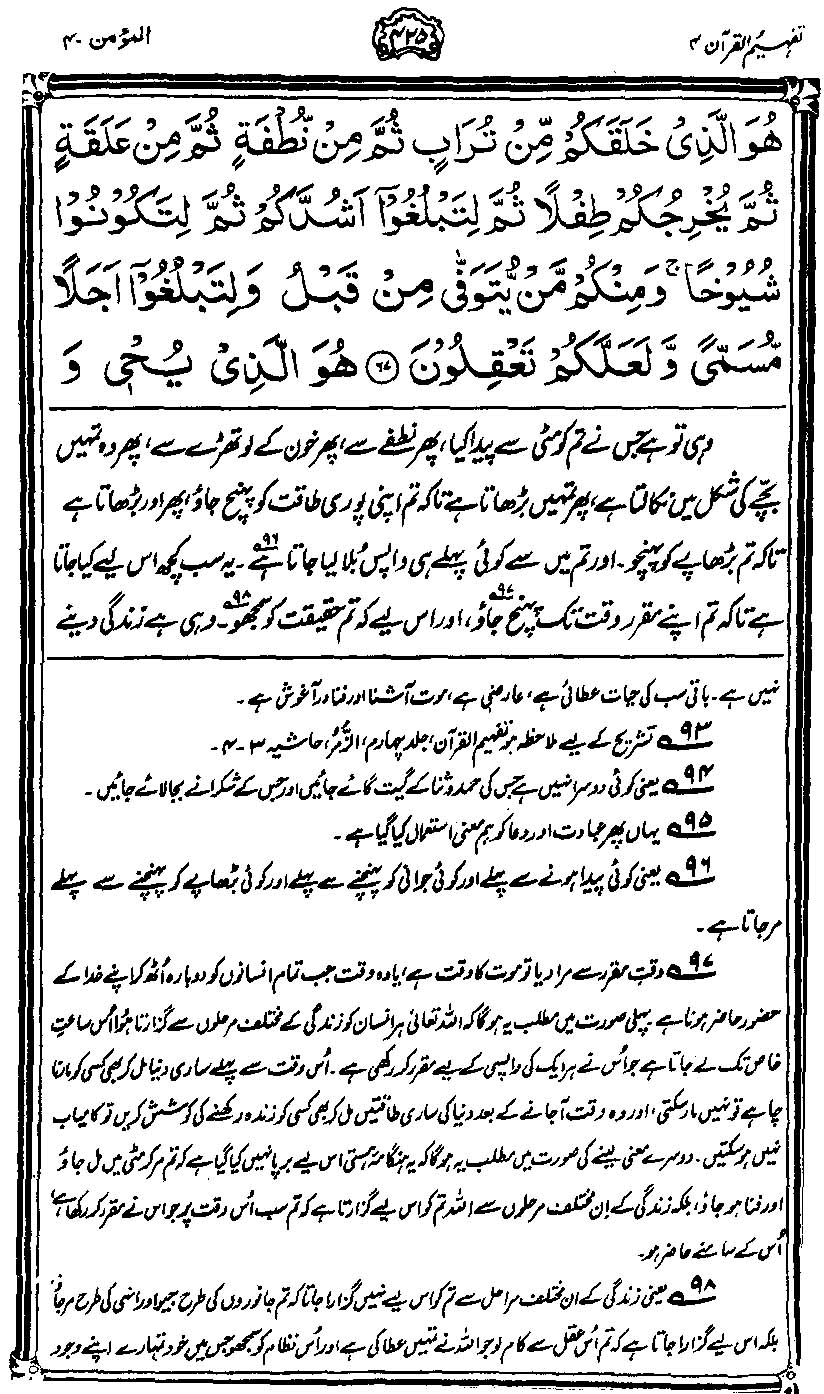 تفہیم القرآن ۴
۴۲۵
المؤمن ۴۰
هُوَ الَّذِىْ خَلَقَكُمْ مِّنْ تُرَابٍ ثُمَّ مِنْ نُّطْفَةٍ ثُمَّ مِنْ عَلَقَةٍ
ثُمَّ يُخْرِجُكُمْ طِفْلًا ثُمَّ لِتَبْلُغُوْٓا اَشُدَّكُمْ ثُمَّ لِتَكُوْنُوْا
شُيُوْخًا ۚ وَمِنْكُمْ مَّنْ يُّتَوَفّٰى مِنْ قَبْلُ وَلِتَبْلُغُوْٓا اَجَلًا
مُّسَمًّى وَّ لَعَلَّكُمْ تَعْقِلُوْنَ ﴿۶۷﴾ هُوَ الَّذِىْ يُحْىٖ وَ
وہی تو ہے جس نے تم کو مٹی سے پیدا کیا، پھر نطفے سے، پھر خون کے لوتھڑے سے، پھر وہ تمہیں
بچّے کی شکل میں نکالتا ہے، پھر تمہیں بڑھاتا ہے تاکہ تم اپنی پوری طاقت کو پہنچ جاؤ، پھر اور بڑھاتا ہے
تاکہ تم بڑھاپے کو پہنچو۔ اور تم میں سے کوئی پہلے ہی واپس بُلا لیا جاتا ہے۹۶۔ یہ سب کچھ اس لیے کیا جاتا
ہے تاکہ تم اپنے مقرر وقت تک پہنچ جاؤ۹۷، اور اس لیے کہ تم حقیقت کو سمجھو۹۸۔ وہی ہے زندگی دینے
نہیں ہے۔ باقی سب کی حیات عطائی ہے، عارضی ہے، موت آشنا اور فنا در آغوش ہے۔
۹۳ تشریح کے لیے ملاحظہ ہو تفہیم القرآن، جلد چہارم، الزُّمَر، حاشیہ ۳-۴۔
۹۴ یعنی کوئی دوسرا نہیں ہے جس کی حمد و ثنا کے گیت گائے جائیں اور جس کے شکرانے بجا لائے جائیں۔
۹۵ یہاں پھر عبادت اور دعا کو ہم معنی استعمال کیا گیا ہے۔
۹۶ یعنی کوئی پیدا ہونے سے پہلے اور کوئی جوانی کو پہنچنے سے پہلے اور کوئی بڑھاپے کو پہنچنے سے پہلے
مر جاتا ہے۔
۹۷ وقتِ مقرر سے مراد یا تو موت کا وقت ہے، یا وہ وقت جب تمام انسانوں کو دوبارہ اُٹھ کر اپنے خدا کے
حضور حاضر ہونا ہے۔ پہلی صورت میں مطلب یہ ہوگا کہ اللہ تعالیٰ ہر انسان کو زندگی کے مختلف مرحلوں سے گزارتا ہُوا اُس ساعتِ
خاص تک لے جاتا ہے جو اُس نے ہر ایک کی واپسی کے لیے مقرر کر رکھی ہے۔ اُس وقت سے پہلے ساری دنیا مل کر بھی کسی کو مارنا
چاہے تو نہیں مار سکتی، اور وہ وقت آجانے کے بعد دنیا کی ساری طاقتیں مل کر بھی کسی کو زندہ رکھنے کی کوشش کریں تو کامیاب
نہیں ہو سکتیں۔ دوسرے معنی لینے کی صورت میں مطلب یہ ہوگا کہ یہ ہنگامۂ ہستی اس لیے برپا نہیں کیا گیا ہے کہ تم مر کر مٹی میں مل جاؤ
اور فنا ہو جاؤ، بلکہ زندگی کے اِن مختلف مرحلوں سے اللہ تم کو اس لیے گزارتا ہے کہ تم سب اُس وقت پر جو اس نے مقرر کر رکھا ہے،
اُس کے سامنے حاضر ہو۔
۹۸ یعنی زندگی کے ان مختلف مراحل سے تم کو اس لیے نہیں گزارا جاتا کہ تم جانوروں کی طرح جیو اور انہی کی طرح مر جاؤ،
بلکہ اس لیے گزارا جاتا ہے کہ تم اُس عقل سے کام لو جو اللہ نے تمہیں عطا کی ہے اور اُس نظام کو سمجھو جس میں خود تمہارے اپنے وجود